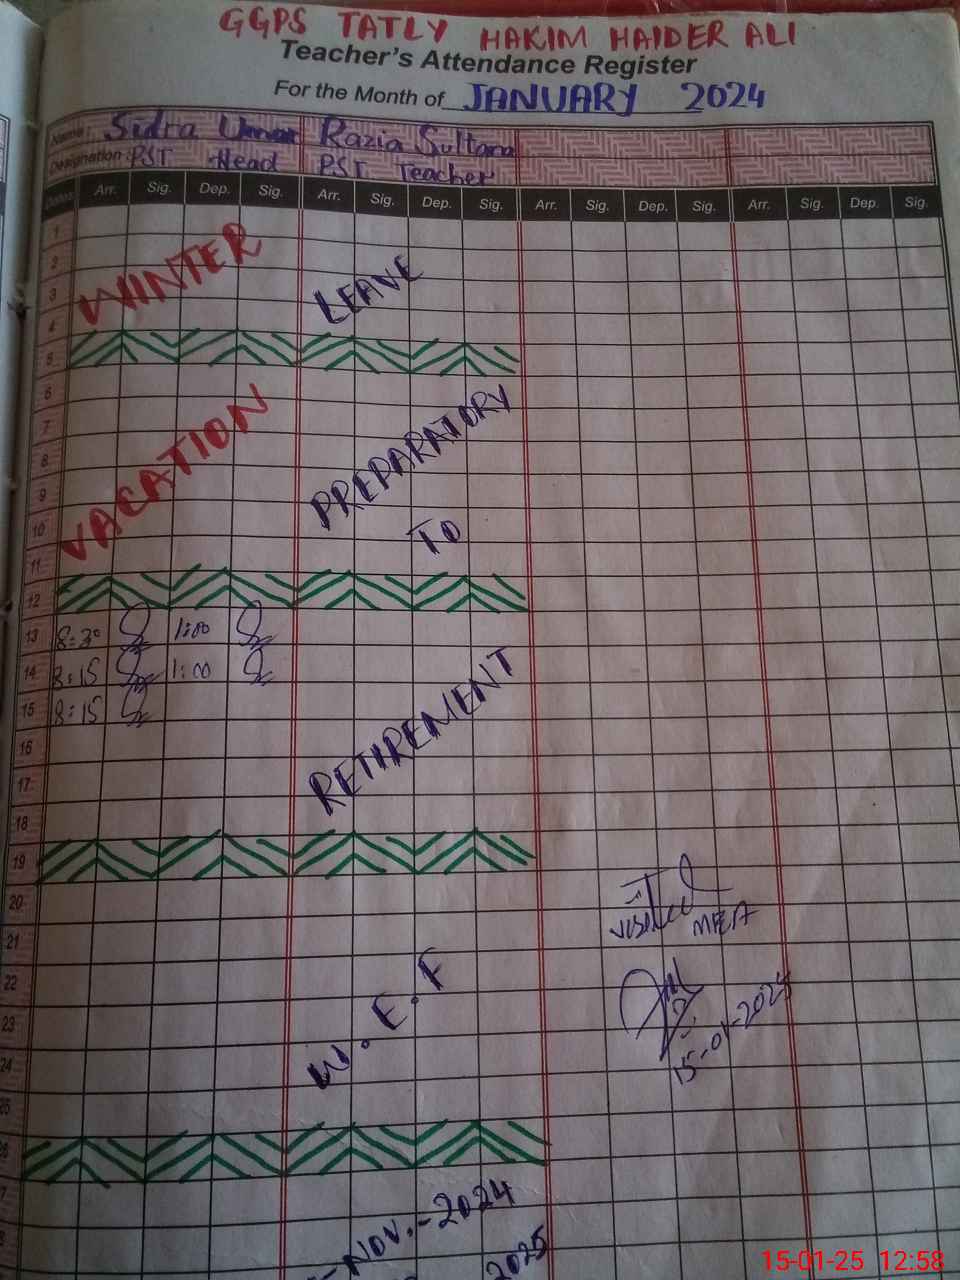 GGPS TATLY HAKIM HAIDER ALI
Teacher's Attendance Register
For the Month of JANUARY 2024
Name: Sidra Umar Razia Sultana
Designation: PST Head PST Teacher
Dates Arr. Sig. Dep. Sig. Arr. Sig. Dep. Sig. Arr. Sig. Dep. Sig. Arr. Sig. Dep. Sig.
1
2
WINTER LEAVE
3
4
5
6
7
VACATION PREPARATORY
8
9
10
TO
11
12
13 8:30 1:00
14 8:15 1:00
15 8:15
16
RETIREMENT
17
18
19
20
visited MEA
21
22
W.E.F
23
15-01-2025
24
25
26
7
-NOV.-2024
8
2025
15-01-25 12:58